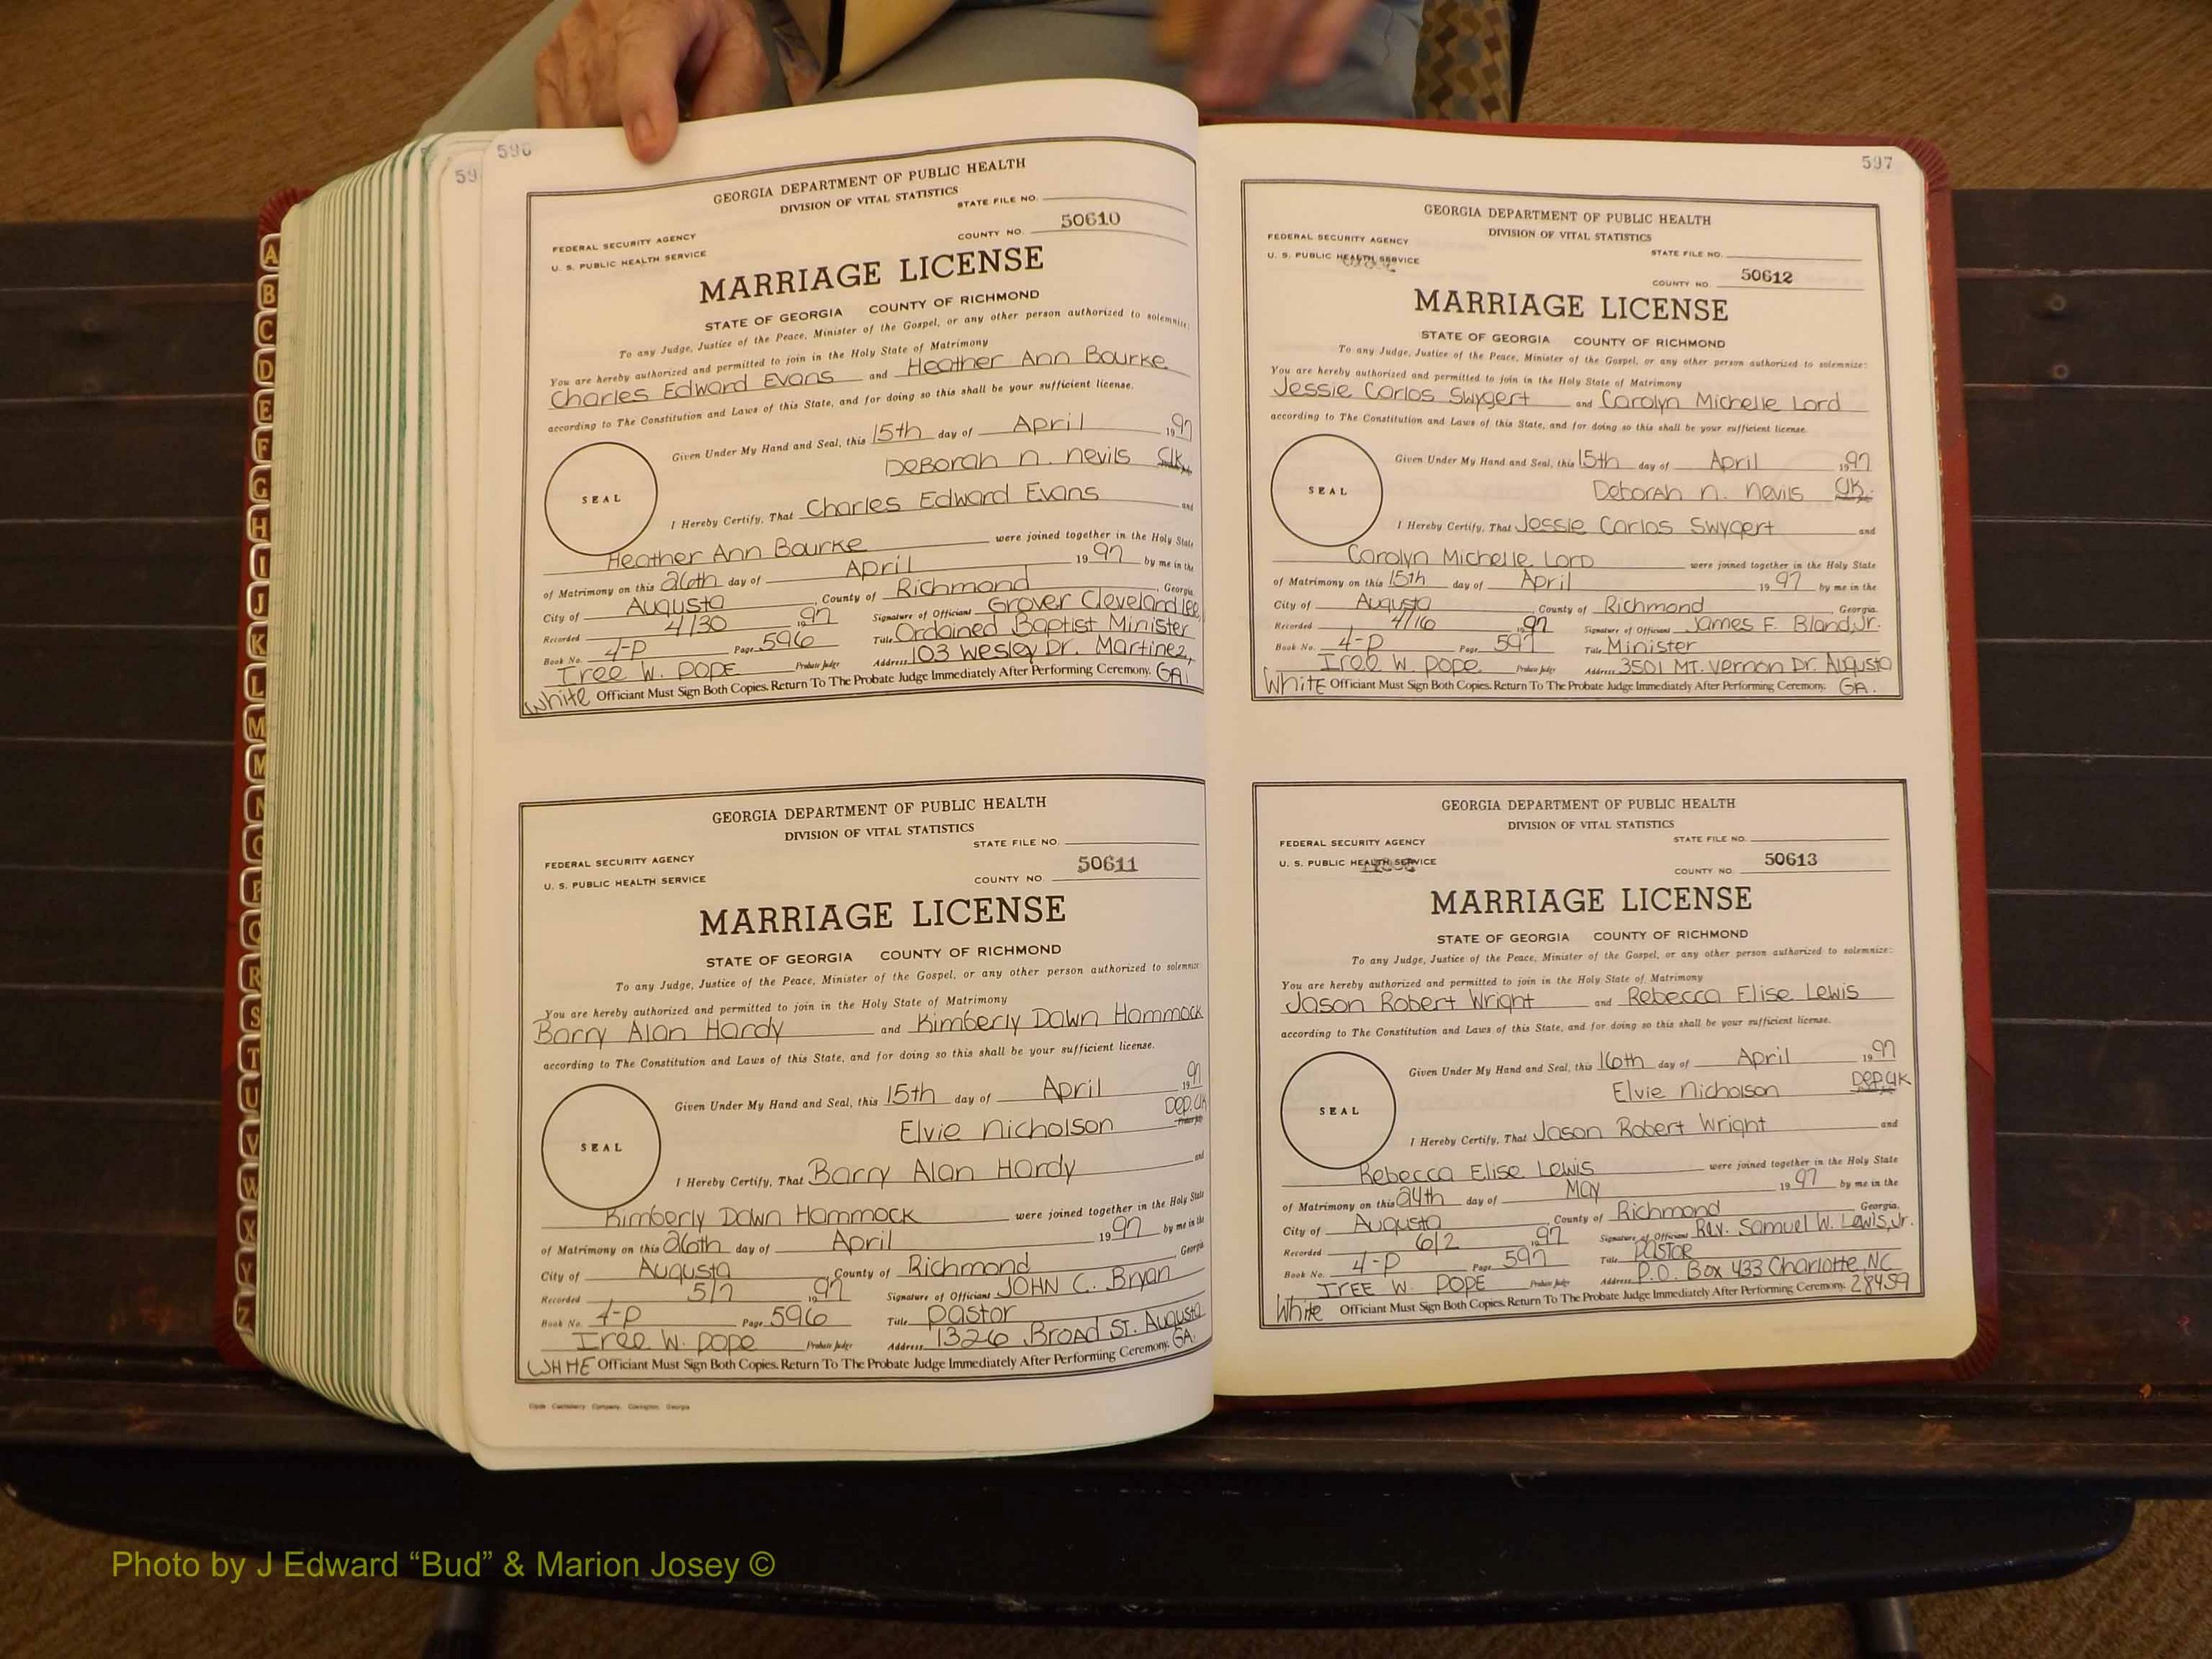 596
59
GEORGIA DEPARTMENT OF PUBLIC HEALTH
DIVISION OF VITAL STATISTICS
STATE FILE NO.
FEDERAL SECURITY AGENCY
U. S. PUBLIC HEALTH SERVICE
COUNTY NO. 50610
MARRIAGE LICENSE
STATE OF GEORGIA COUNTY OF RICHMOND
To any Judge, Justice of the Peace, Minister of the Gospel, or any other person authorized to solemnize:
You are hereby authorized and permitted to join in the Holy State of Matrimony
Charles Edward Evans and Heather Ann Bourke
according to The Constitution and Laws of this State, and for doing so this shall be your sufficient license.
Given Under My Hand and Seal, this 15th day of April 1997
Deborah N. Nevils Clk.
SEAL
I Hereby Certify, That Charles Edward Evans and
Heather Ann Bourke were joined together in the Holy State
of Matrimony on this 26th day of April 1997 by me in the
City of Augusta County of Richmond, Georgia
Recorded 4/30 1997 Signature of Officiant Grover Cleveland Lee,
Book No. 4-P Page 596 Title Ordained Baptist Minister
Iree W. Pope Probate Judge Address 103 Wesley Dr. Martinez,
White Officiant Must Sign Both Copies. Return To The Probate Judge Immediately After Performing Ceremony. GA.
GEORGIA DEPARTMENT OF PUBLIC HEALTH
DIVISION OF VITAL STATISTICS
STATE FILE NO.
FEDERAL SECURITY AGENCY
U. S. PUBLIC HEALTH SERVICE
COUNTY NO. 50611
MARRIAGE LICENSE
STATE OF GEORGIA COUNTY OF RICHMOND
To any Judge, Justice of the Peace, Minister of the Gospel, or any other person authorized to solemnize:
You are hereby authorized and permitted to join in the Holy State of Matrimony
Barry Alan Hardy and Kimberly Dawn Hammock
according to The Constitution and Laws of this State, and for doing so this shall be your sufficient license.
Given Under My Hand and Seal, this 15th day of April 1997
Elvie Nicholson Dep. Clk
SEAL
I Hereby Certify, That Barry Alan Hardy and
Kimberly Dawn Hammock were joined together in the Holy State
of Matrimony on this 26th day of April 1997 by me in the
City of Augusta County of Richmond, Georgia
Recorded 5/7 1997 Signature of Officiant John C. Bryan
Book No. 4-P Page 596 Title Pastor
Iree W. Pope Probate Judge Address 1326 Broad St. Augusta
White Officiant Must Sign Both Copies. Return To The Probate Judge Immediately After Performing Ceremony. GA.
Company, Georgia
597
GEORGIA DEPARTMENT OF PUBLIC HEALTH
DIVISION OF VITAL STATISTICS
FEDERAL SECURITY AGENCY
STATE FILE NO.
U. S. PUBLIC HEALTH SERVICE
COUNTY NO. 50612
MARRIAGE LICENSE
STATE OF GEORGIA COUNTY OF RICHMOND
To any Judge, Justice of the Peace, Minister of the Gospel, or any other person authorized to solemnize:
You are hereby authorized and permitted to join in the Holy State of Matrimony
Jessie Carlos Swygert and Carolyn Michelle Lord
according to The Constitution and Laws of this State, and for doing so this shall be your sufficient license.
Given Under My Hand and Seal, this 15th day of April 1997
Deborah N. Nevils Clk.
SEAL
I Hereby Certify, That Jessie Carlos Swygert and
Carolyn Michelle Lord were joined together in the Holy State
of Matrimony on this 15th day of April 1997 by me in the
City of Augusta, County of Richmond, Georgia.
Recorded 4/16 1997 Signature of Officiant James F. Bland, Jr.
Book No. 4-P Page 597 Title Minister
Iree W. Pope Probate Judge Address 3501 Mt. Vernon Dr. Augusta
White Officiant Must Sign Both Copies. Return To The Probate Judge Immediately After Performing Ceremony. GA.
GEORGIA DEPARTMENT OF PUBLIC HEALTH
DIVISION OF VITAL STATISTICS
STATE FILE NO.
FEDERAL SECURITY AGENCY
U. S. PUBLIC HEALTH SERVICE
COUNTY NO. 50613
MARRIAGE LICENSE
STATE OF GEORGIA COUNTY OF RICHMOND
To any Judge, Justice of the Peace, Minister of the Gospel, or any other person authorized to solemnize:
You are hereby authorized and permitted to join in the Holy State of Matrimony
Jason Robert Wright and Rebecca Elise Lewis
according to The Constitution and Laws of this State, and for doing so this shall be your sufficient license.
Given Under My Hand and Seal, this 16th day of April 1997
Elvie Nicholson Dep. Clk
SEAL
I Hereby Certify, That Jason Robert Wright and
Rebecca Elise Lewis were joined together in the Holy State
of Matrimony on this 24th day of May 1997 by me in the
City of Augusta, County of Richmond Georgia.
Recorded 6/2 1997 Signature of Officiant Rev. Samuel W. Lewis, Jr.
Book No. 4-P Page 597 Title Pastor
Iree W. Pope Probate Judge Address P.O. Box 433 Charlotte, NC
White Officiant Must Sign Both Copies. Return To The Probate Judge Immediately After Performing Ceremony. 28459
A
B
C
D
E
F
G
H
I
J
K
L
M
M
N
O
P
Q
R
S
T
U
V
W
X
Y
Z
Photo by J Edward “Bud” & Marion Josey ©